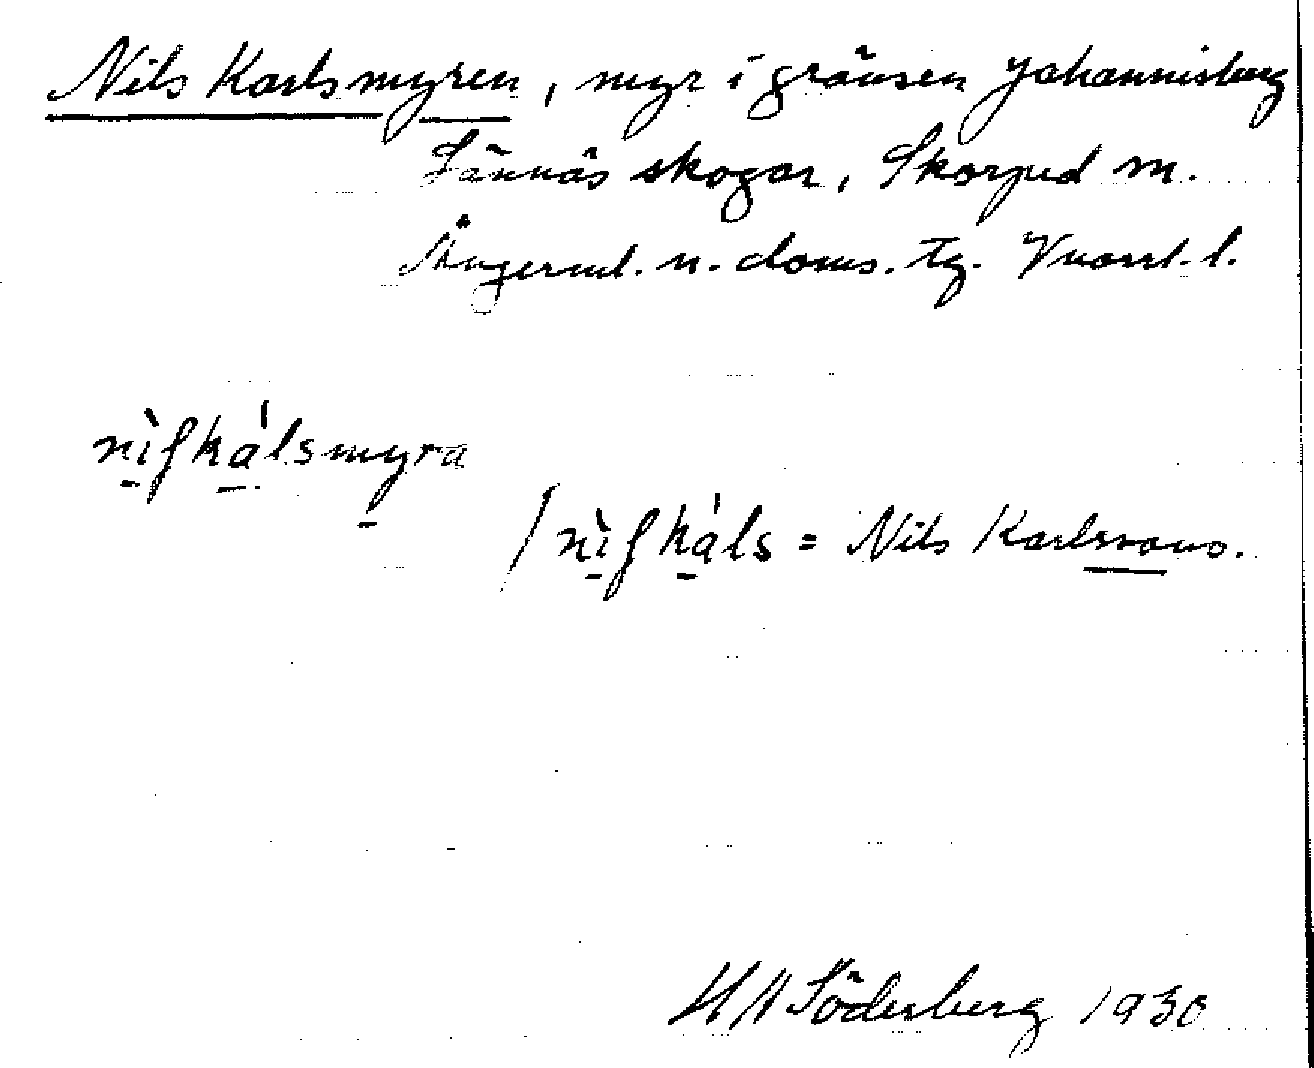 Nils Karlsmyren, myr i gränsen Johannisberg
Sännäs skogar, Skorped sn.
Ångerml. n. doms. tg. Vnorrl. l.
nìʃkálsmyra
/nìʃkáls = Nils Karlssons.
HA Söderberg 1930